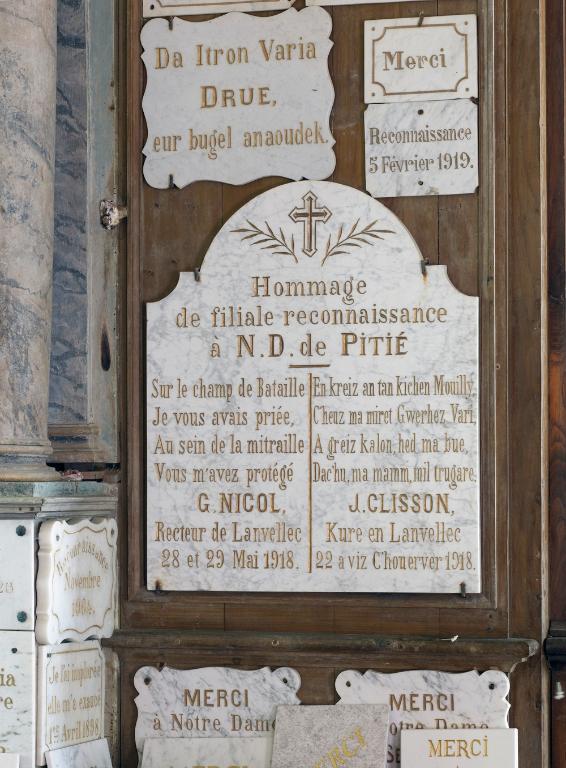 Da Itron Varia
DRUE,
eur bugel anaoudek.
Merci
Reconnaissance
5 Février 1919.
Hommage
de filiale reconnaissance
à N.D. de PITIÉ
Sur le champ de Bataille
Je vous avais priée,
Au sein de la mitraille
Vous m'avez protégé
G. NICOL,
Recteur de Lanvellec
28 et 29 Mai 1918.
En kreiz an tan kichen Mouilly,
C'heuz ma miret Gwerhez Vari,
A greiz kalon, hed ma bue,
Dac'hu, ma mamm, mil trugare.
J. CLISSON,
Kure en Lanvellec
22 a viz C'houerver 1918.
Reconnaissance
Novembre
J'ai imploré
elle m'a exaucé
1er Avril 1898.
MERCI
à Notre Dame
MERCI
Notre Dame
MERCI
MERCI
MERCI